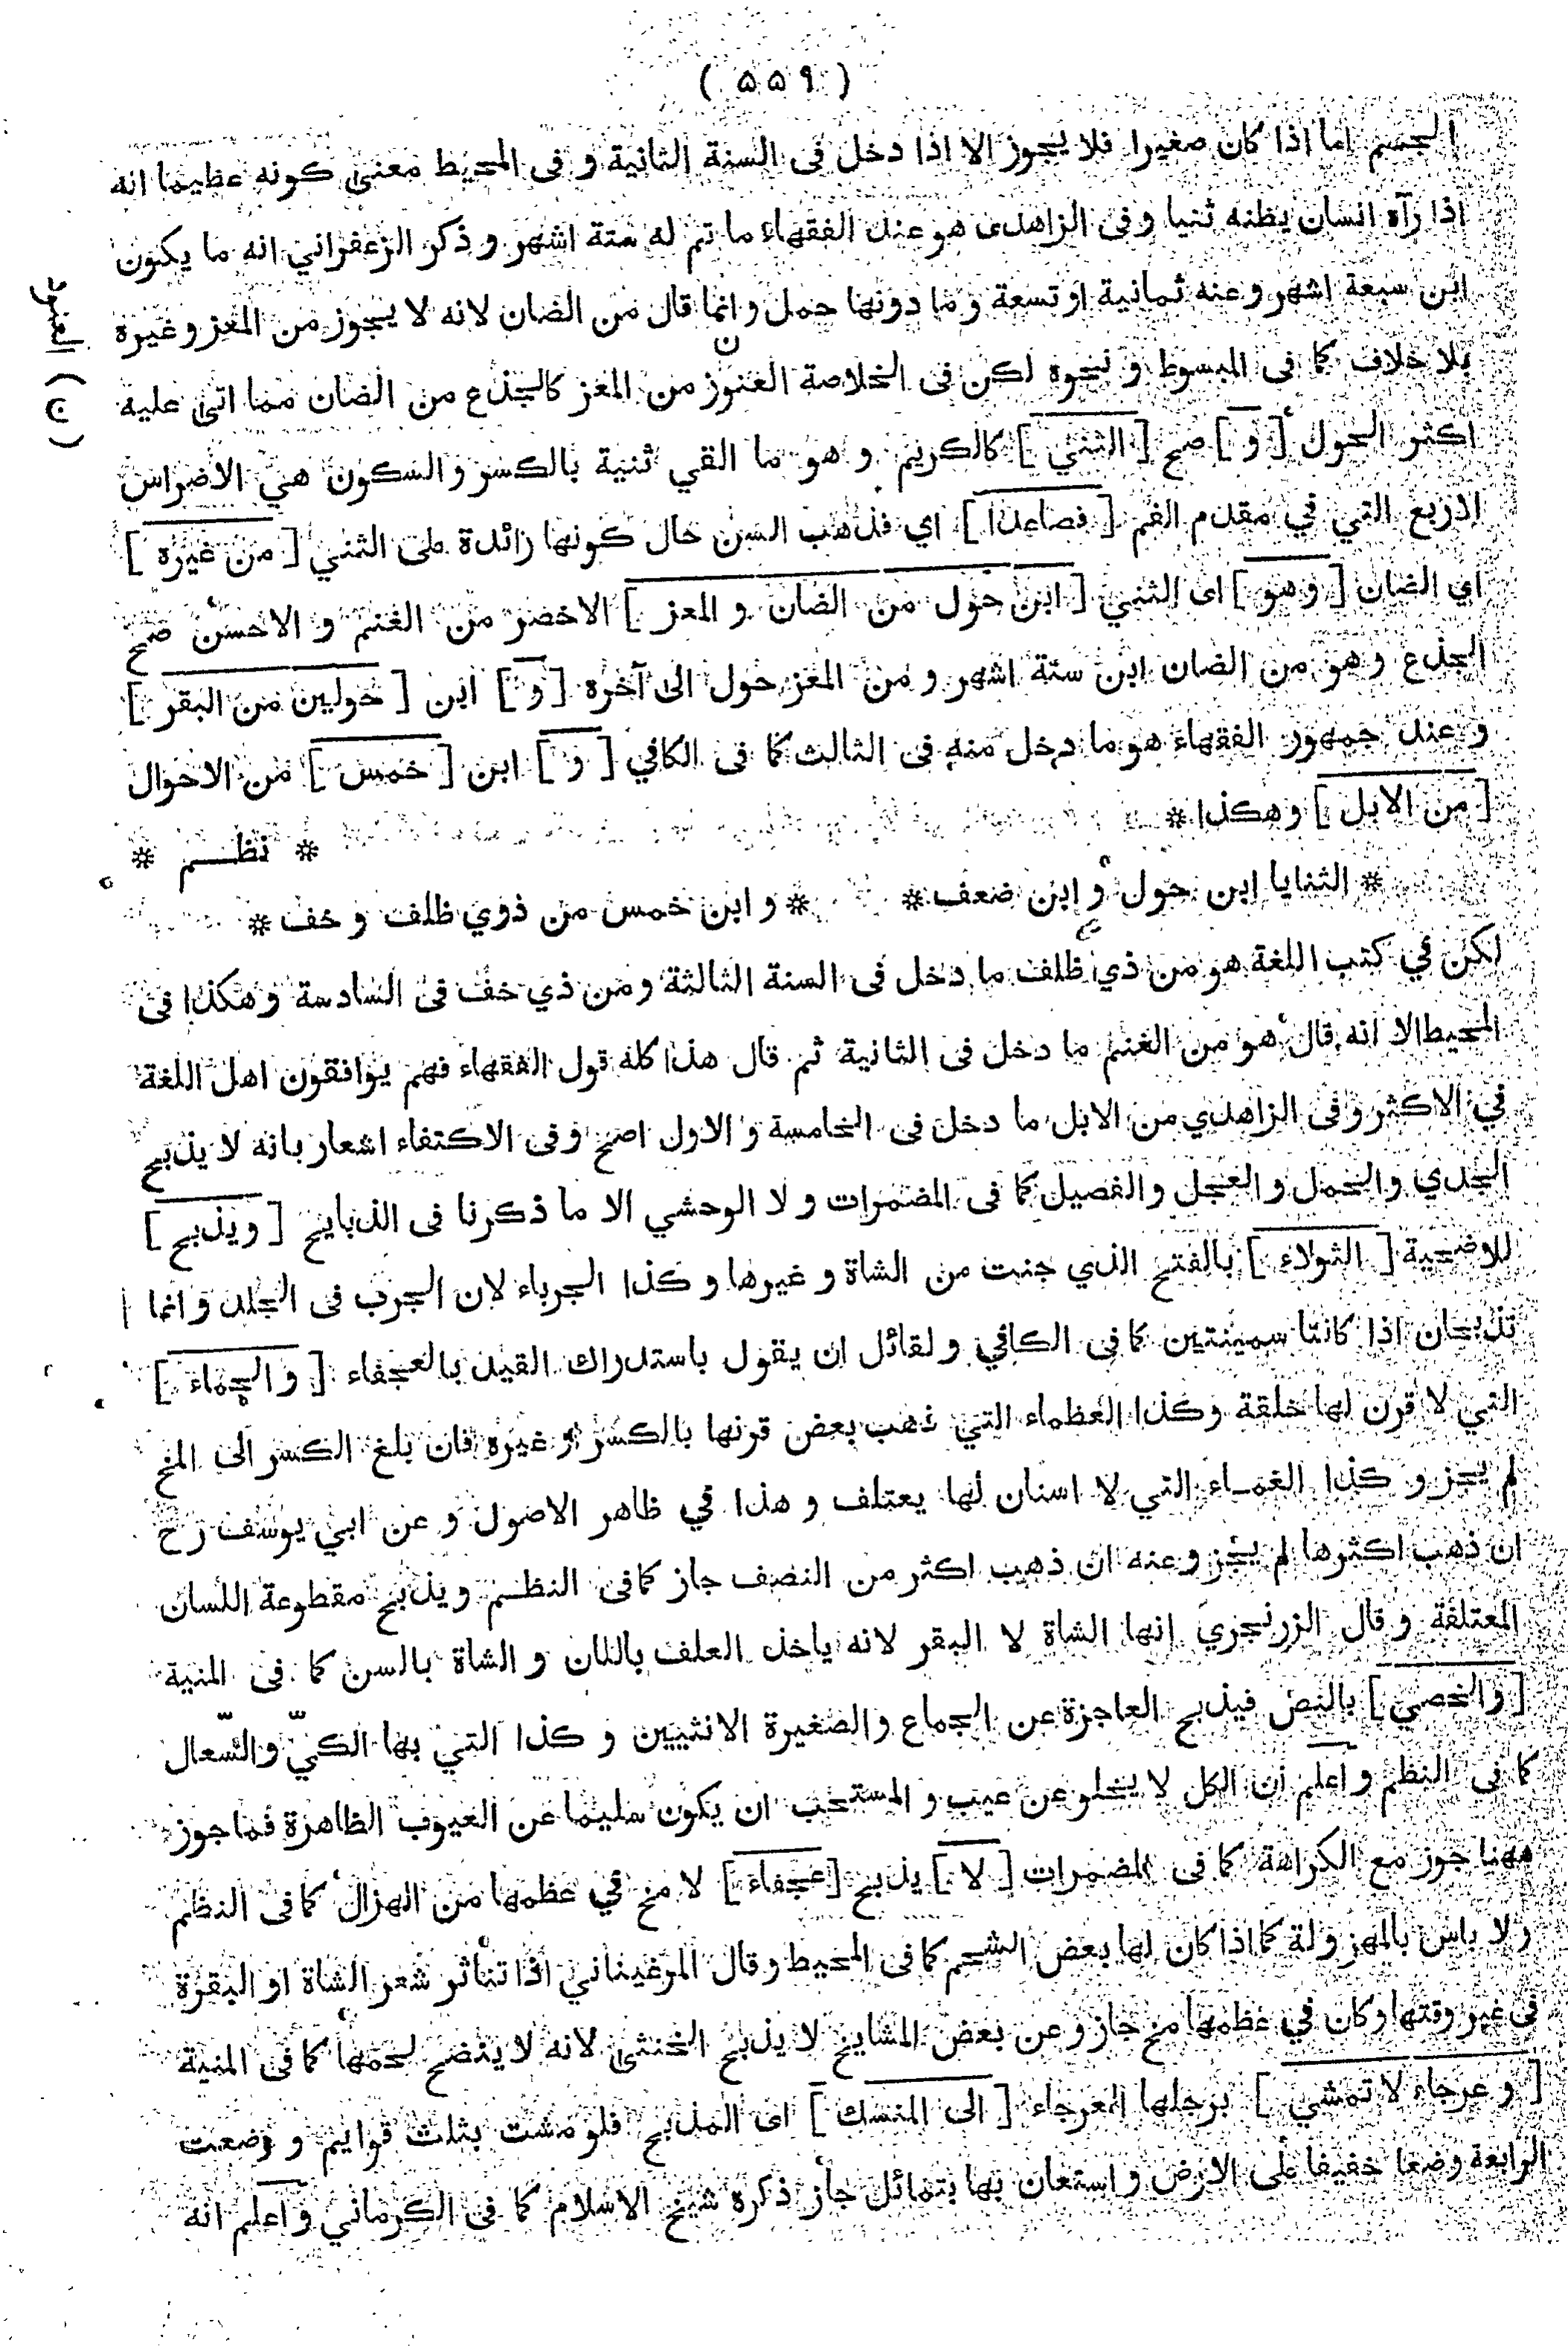 ( ٥٥٩ )
الجسم اما اذا كان صغيرا فلا يجوز الا اذا دخل فى السنة الثانية و فى المحيط معنى كونه عظيما انه
اذا رآه انسان يظنه ثنيا وفى الزاهدى هو عند الفقهاء ما تم له ستة اشهر و ذكر الزعفراني انه ما يكون
ابن سبعة اشهر وعنه ثمانية او تسعة و ما دونها حمل و انما قال من الضان لانه لا يجوز من المعز وغيره
بلا خلاف كما فى المبسوط و نحوه لكن فى الخلاصة العنوز من المعز كالجذع من الضان مما اتى عليه
اكثر الحول [ و ] صح [ الثني ] كالكريم و هو ما القي ثنية بالكسر و السكون هي الاضراس
الاربع التي في مقدم الفم [ فصاعدا ] اي فذهب السن حال كونها زائدة على الثني [ من غيره ]
اي الضان [ وهو ] اى الثني [ ابن حول من الضان و المعز ] الاخضر من الغنم و الاحسن صح
الجذع و هو من الضان ابن ستة اشهر و من المعز حول الى آخره [ و ] ابن [ حولين من البقر ]
و عند جمهور الفقهاء هو ما دخل منه فى الثالث كما فى الكافي [ و ] ابن [ خمس ] من الاحوال
[ من الابل ] و هكذا *
* نظــم *
* الثنايا ابن حول و ابن ضعف * * و ابن خمس من ذوي ظلف و خف *
لكن في كتب اللغة هو من ذي ظلف ما دخل فى السنة الثالثة و من ذي خف فى السادسة و هكذا فى
المحيط الا انه قال هو من الغنم ما دخل فى الثانية ثم قال هذا كله قول الفقهاء فهم يوافقون اهل اللغة
في الاكثر و فى الزاهدي من الابل ما دخل فى الخامسة و الاول اصح و فى الاكتفاء اشعار بانه لا يذبح
الجدي والحمل و العجل والفصيل كما فى المضمرات و لا الوحشي الا ما ذكرنا فى الذبايح [ ويذبح ]
للاضحية [ الثولاء ] بالفتح الذي جنت من الشاة و غيرها و كذا الجرباء لان الجرب فى الجلد و انما
تذبحان اذا كانتا سمينتين كما فى الكافي و لقائل ان يقول باستدراك القيد بالعجفاء [ والجماء ]
التي لا قرن لها خلقة وكذا العظماء التي ذهب بعض قرنها بالكسر او غيره فان بلغ الكسر الى المخ
لم يجز و كذا الغمــاء التي لا اسنان لها يعتلف و هذا في ظاهر الاصول و عن ابي يوسف رح
ان ذهب اكثرها لم يجز وعنه ان ذهب اكثر من النصف جاز كما فى النظــم و يذبح مقطوعة اللسان
المعتلفة و قال الزرنجري انها الشاة لا البقر لانه ياخذ العلف باللان و الشاة بالسن كما فى المنية
[ والخصي ] بالنص فيذبح العاجزة عن الجماع والصغيرة الانثيين و كذا التي بها الكيّ والسّعال
كما فى النظم و اعلم ان الكل لا يخلو عن عيب و المستحب ان يكون سليما عن العيوب الظاهرة فما جوز
ههنا جوز مع الكراهة كما فى المضمرات [ لا ] يذبح [ عجفاء ] لا مخ في عظمها من الهزال كما فى النظم
و لا باس بالمهزولة كما اذا كان لها بعض الشحم كما فى المحيط و قال المرغيناني اذا تناثر شعر الشاة او البقرة
فى غير وقتها وكان في عظمها مخ جاز و عن بعض المشايخ لا يذبح الخنثى لانه لا ينضج لحمها كما فى المنية
[ و عرجاء لا تمشي ] برجلها العرجاء [ الى المنسك ] اى المذبح فلو مشت بثلث قوايم و وضعت
الرابعة وضعا خفيفا على الارض و استعان بها بتمائل جاز ذكره شيخ الاسلام كما فى الكرماني و اعلم انه
العنود ( ن )